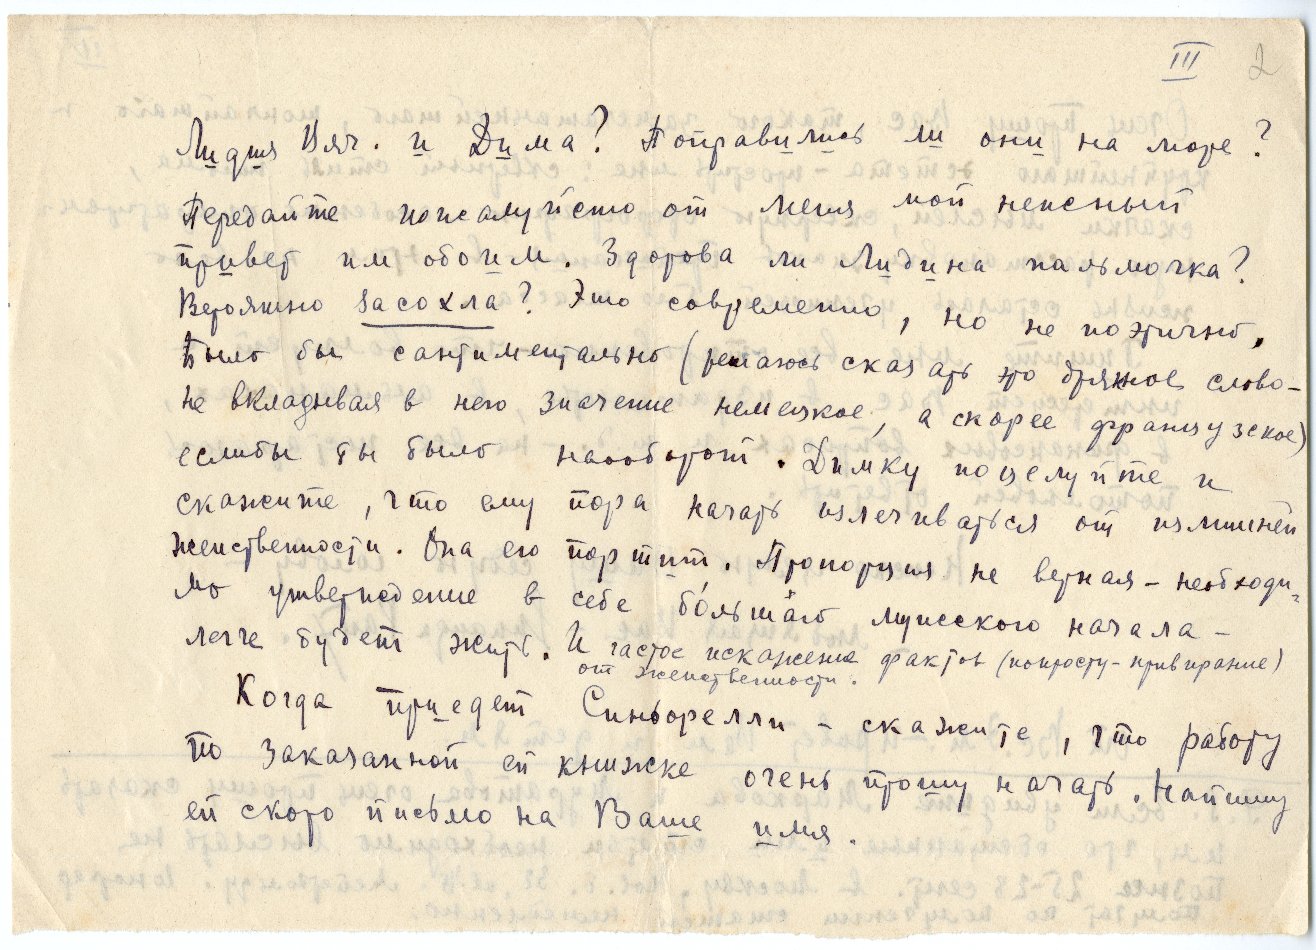 III 2
Лидия Вяч. и Дима? Поправились ли они на море?
Передайте пожалуйста от меня мой нежный
привет им обоим. Здорова ли Лидина пальмочка?
Вероятно засохла? Это современно, но не поэтично.
Было бы сантиментально (решаюсь сказать это бряжное слово –
не вкладывая в него значение немецкое, а скорее французское)
еслибы бы было наооборот. Димку поцелуйте и
скажите, что ему пора начать излечиваться от излишней
женственности. Она его портит. Пропорция не верная – необходи-
мо утверждение в себе бо́льшаго мужского начала –
легче будет жить. И частое искажение фактов (попросту – привирание)
от женственности.
Когда приедет Синьорелли – скажите, что работу
по заказанной ей книжке очень прошу начать. Напишу
ей скоро письмо на Ваше имя.